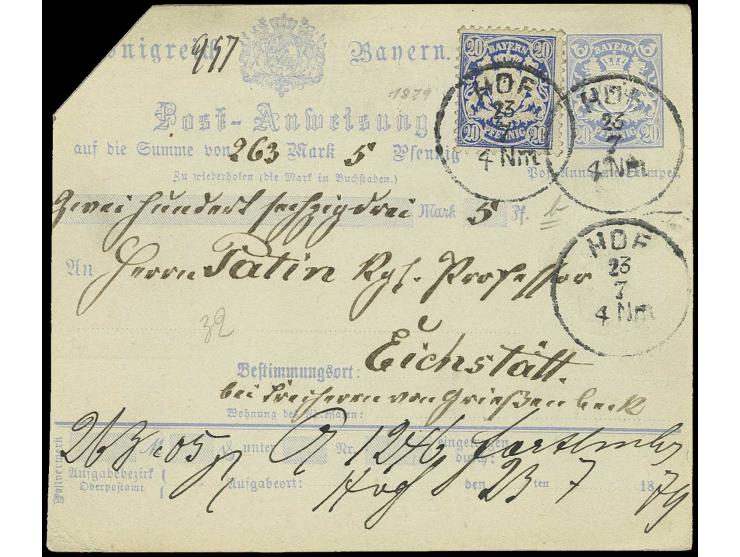 Königreich Bayern.
957
1879
BAYERN
20 20
PFENNIG
20 20
BAYERN
PFENNIG
20 20
HOF
23
7
4 Nm
HOF
23
7
4 Nm
Post-Anweisung
auf die Summe von 263 Mark 5 Pfennig
Zu wiederholen (die Mark in Buchstaben.)
Post-Annahme-Stempel.
Zweihundert sechzigdrei Mark 5 Pf.
An Herrn Patin Kgl. Professor
HOF
23
7
4 Nm
32
Eichstätt.
Bestimmungsort:
bei Freiherrn von Grießenbeck
Wohnung des Adressaten:
263 M 05 Pf unter Nr. 1246 eingetragen durch:
Aufgabebezirk
Oberpostamt
Aufgabeort: Hof den 23 ten 7 1879